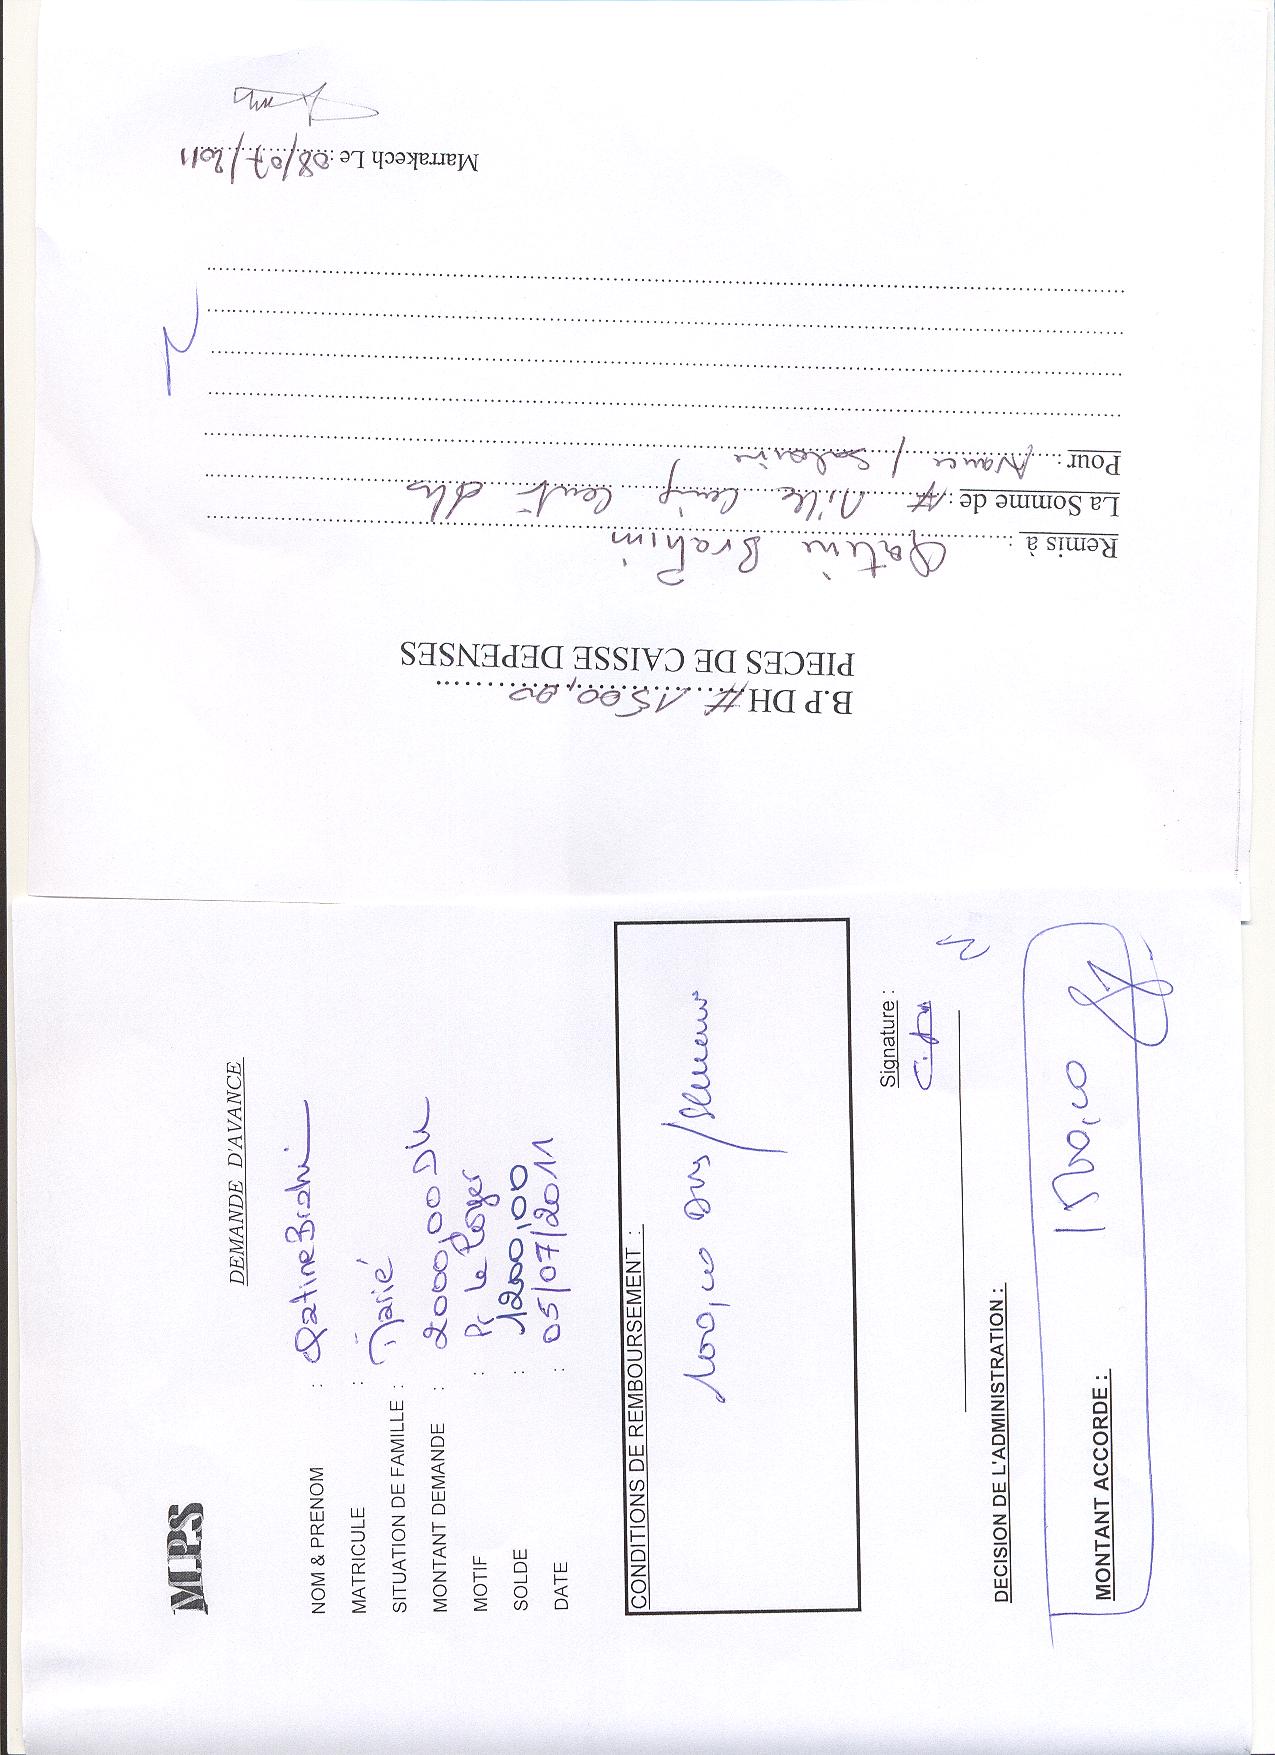 B.P DH # 1500,00
PIECES DE CAISSE DEPENSES
Remis à : Qatine Brahim
La Somme de : # Mille Cinq Cent dhs
Pour : Avance / Salaire
Marrakech Le : 08/07/2011
M.P.S
DEMANDE D'AVANCE
NOM & PRENOM : Qatine Brahim
MATRICULE :
SITUATION DE FAMILLE : Marié
MONTANT DEMANDE : 2000,00 Dh
MOTIF : Pr le Loyer
SOLDE : 1200,00
DATE : 05/07/2011
CONDITIONS DE REMBOURSEMENT :
Signature :
DECISION DE L'ADMINISTRATION :
MONTANT ACCORDE : 1500,00